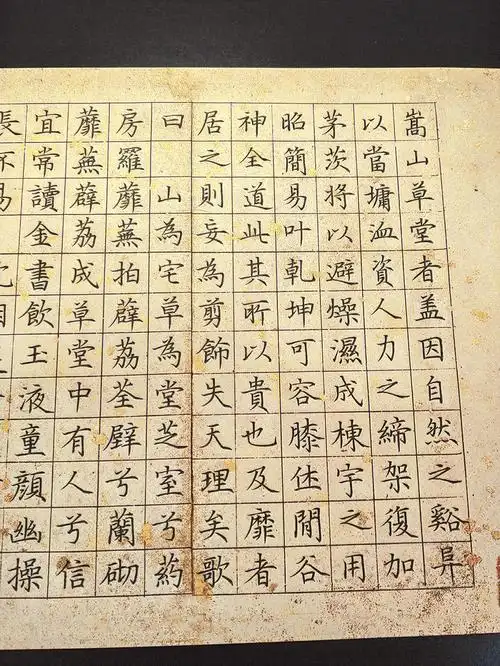 嵩山草堂者盖因自然之谿阜
以當墉洫資人力之締架復加
茅茨將以避燥濕成棟宇之用
昭簡易叶乾坤可容膝休閒谷
神全道此其所以貴也及靡者
居之則妄為剪飾失天理矣歌
曰 山為宅草為堂芝室兮葯
房羅蘼蕪拍薜荔荃壁兮蘭砌
蘼蕪薜荔成草堂中有人兮信
宜常讀金書飲玉液童顏幽操
長不易